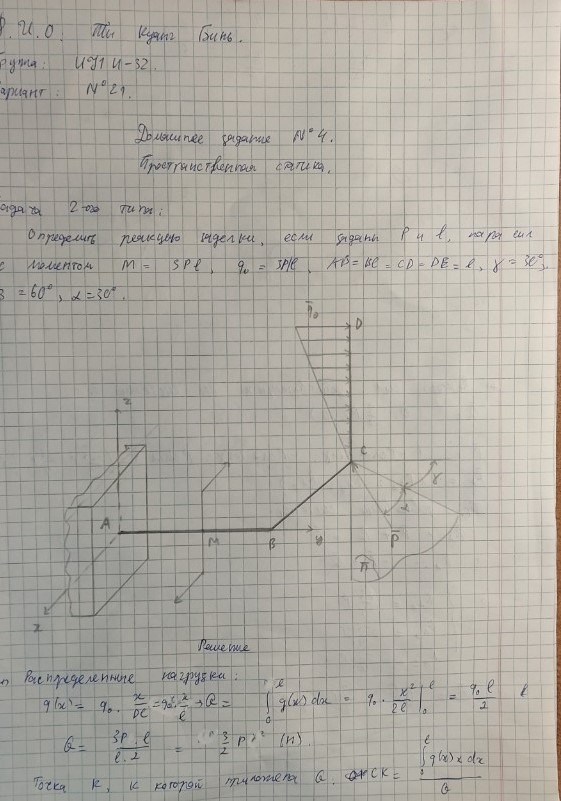 Ф.И.О: Ти Куанг Бинь.
Группа: ИУ1И-32.
Вариант: N°21.
Домашнее задание N°4.
Пространственная статика.
Задача 2-ого типа:
Определить реакцию заделки, если заданы P и l, пара сил
с моментом M = 3Pl, q₀ = 3P/l, AB=BC=CD=DE=l, γ=30°,
β=60°, α=30°.
q̄₀ D
z
C
γ
α
A M B y P̄
П
x
Решение
Распределенные нагрузки:
g(x) = q₀ · x/DC = q₀ · x/l → Q = ∫₀ˡ g(x) dx = q₀ · x²/2l |₀ˡ = q₀ l/2
Q = 3P·l/l·2 = 3/2 P (Н).
Точка K, к которой приложена Q. CK = ∫₀ˡ g(x) x dx / Q